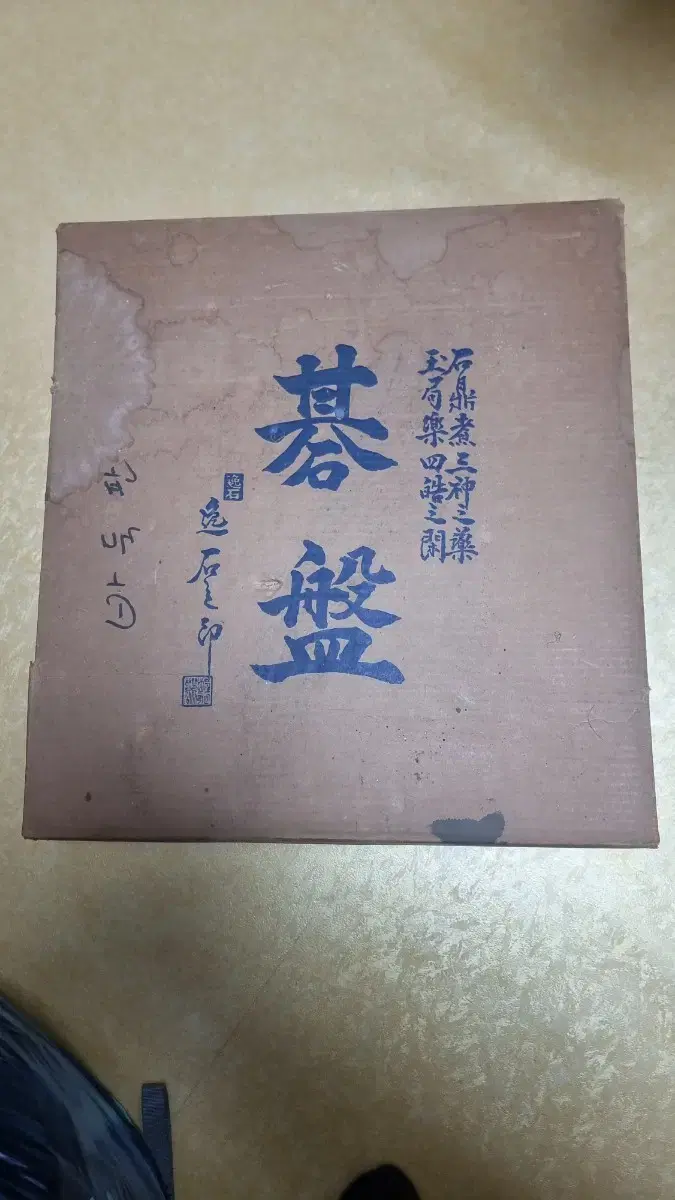 石鼎煮三神之藥
玉局樂四皓之閑
碁盤
逸石
逸石之印
바둑판